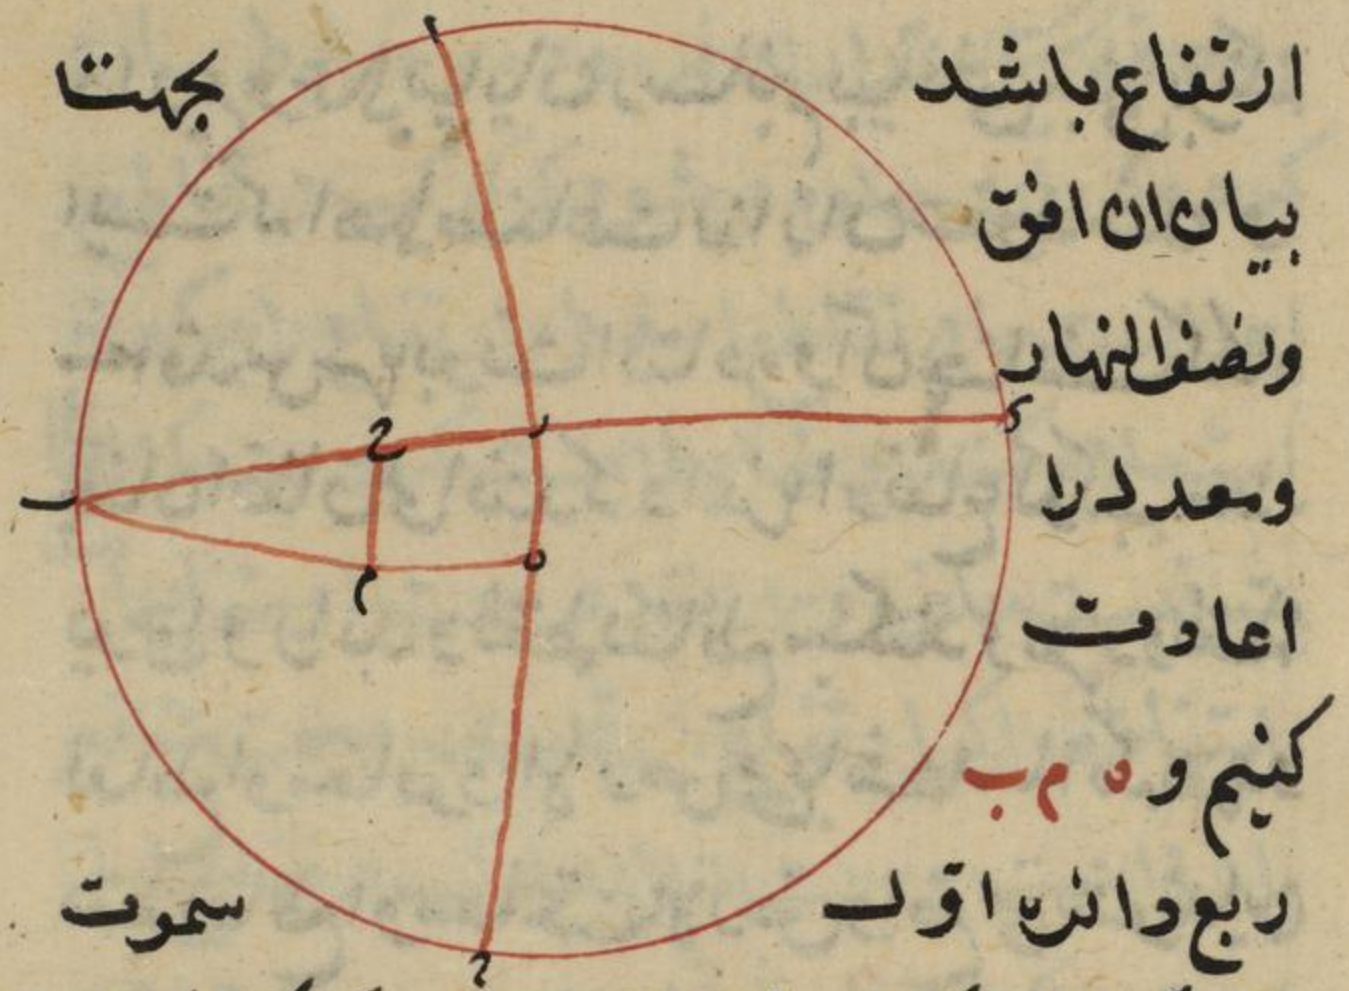 ارتفاع باشد بجهت
بیان ان افق
ونصف النهار
ومعدل را
اعادت
کنیم و ه م ب
ربع دائره اول سموت
ا
ر
ح
ک
ب
ه
م